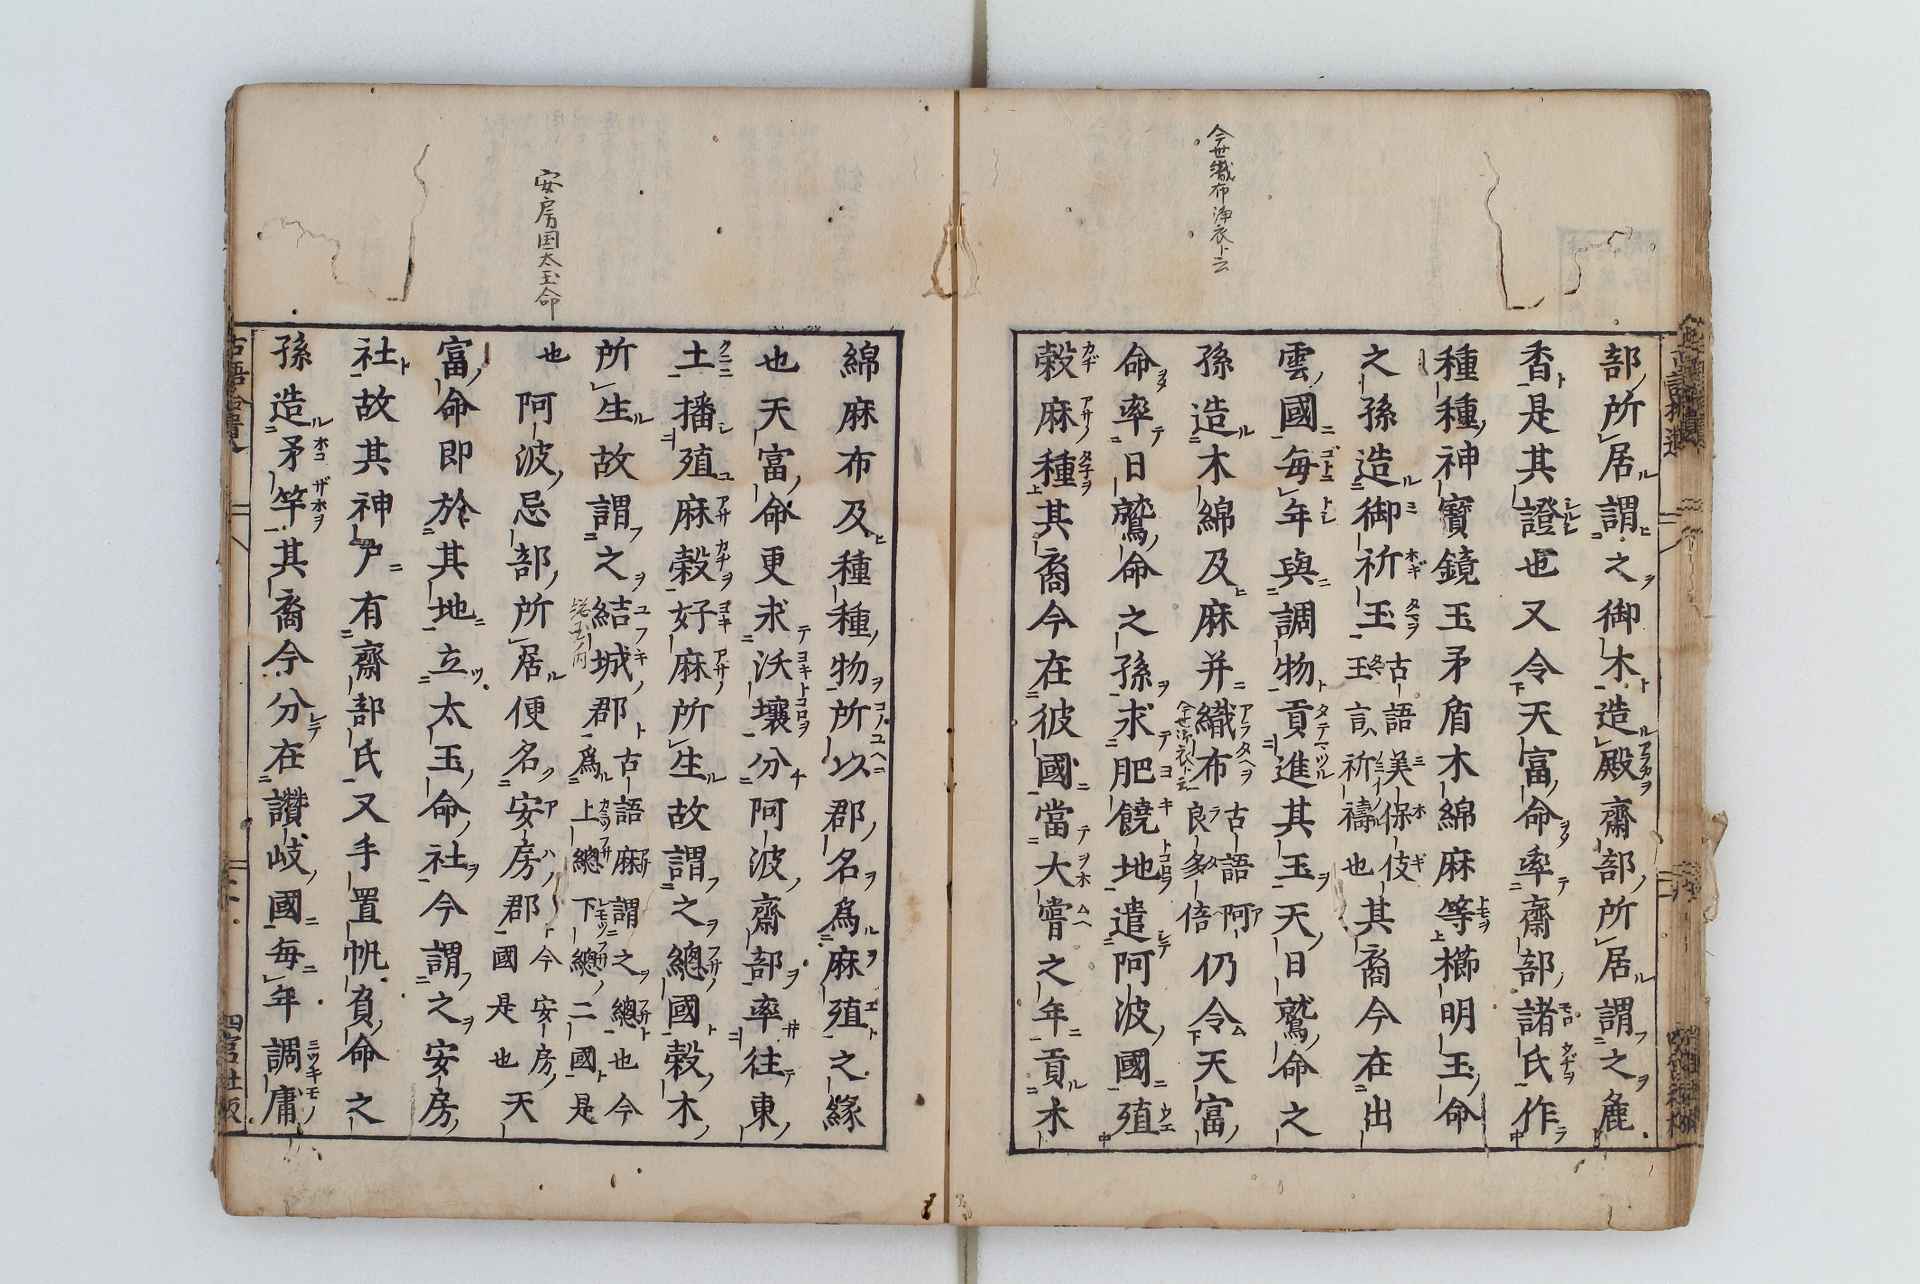 今世織布浄衣ト云
部所居謂之御木造殿齋部所居謂之麁
香是其證也又令天富命率齋部諸氏作
種種神寶鏡玉矛盾木綿麻等櫛明玉命
之孫造御祈玉古語美保伎玉言祈禱也其裔今在出
雲國毎年與調物貢進其玉天日鷲命之
孫造木綿及麻并織布古語阿良多倍仍令天富
命率日鷲命之孫求肥饒地遣阿波國殖
穀麻種其裔今在彼國當大嘗之年貢木
安房国太玉命
綿麻布及種種物所以郡名爲麻殖之緣
也天富命更求沃壤分阿波齋部率往東
土播殖麻穀好麻所生故謂之總國穀木
所生故謂之結城郡古語麻謂之總也今爲上總下總二國是
也阿波忌部所居便名安房郡今安房國是也天
富命即於其地立太玉命社今謂之安房
社故其神戸有齋部氏又手置帆負命之
孫造矛竿其裔今分在讚岐國毎年調庸